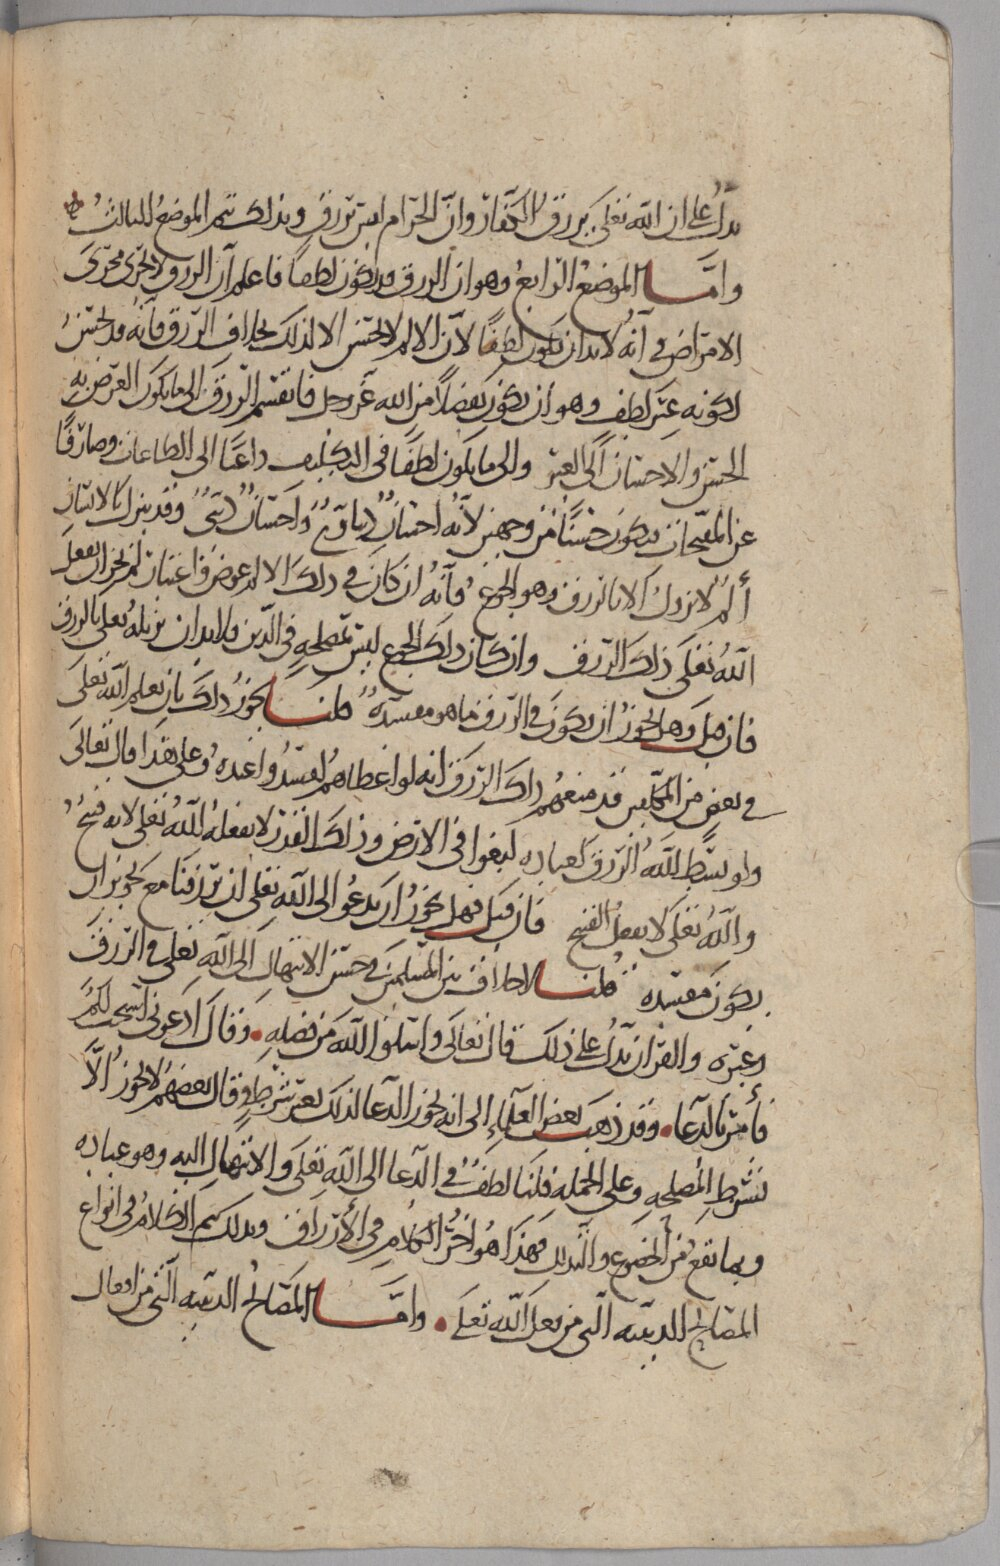 يدل على ان الله تعلى يرزق الكفار وان الحرام ليس برزق وبذلك تم الموضع الثالث
واما الموضع الرابع وهو ان الرزق قد يكون لطفا فاعلم ان الرزق لا يجرى مجرى
الامراض في انه لا بد ان يكون لطفا لان الالم لا يحسن الا لذلك بخلاف الرزق فانه قد يحسن
لكونه غير لطف وهو ان يكون تفضلا من الله عز وجل فانقسم الرزق الى ما يكون الغرض به
الحسن والاحسان الى الغير والى ما يكون لطفا في التكليف داعيا الى الطاعات وصارفا
عن المقبحات فيكون حسنا من وجهين لانه احسان دنياوي واحسان ديني وقد ينزل بالانسان
ألم لا يزول الا بالرزق وهو الجوع فانه ان كان في ذلك الالم عوض واعتبار لم يجز ان يفعل
الله تعلى ذلك الرزق وان كان ذلك الجوع ليس بمصلحه في الدين فلا بد ان يزيله تعلى بالرزق
فان قيل وهل يجوز ان يكون في الرزق ما هو مفسدة قلنا يجوز ذلك بان يعلم الله تعلى
في بعض من المكلفين قد منعهم ذلك الرزق انه لو اعطاهم لفسدوا عنده وعلى هذا قال تعالى
ولو بسط الله الرزق لعباده لبغوا في الارض وذلك القدر لا يفعله الله تعلى لانه قبيح
والله تعلى لا يفعل القبيح فان قيل فهل يجوز ان يدعوا الى الله تعلى ان يرزقنا مع تجويز ان
يكون مفسده قلنا لا خلاف بين المسلمين في حسن الابتهال الى الله تعلى في الرزق
وغيره والقران يدل على ذلك قال تعالى واسئلوا الله من فضله وقال ادعوني استجب لكم
فأمر بالدعا وقد ذهب بعض العلماء الى انه يجوز الدعا لذلك بغير شرط وقال بعضهم لا يجوز الا
بشرط المصلحه وعلى الجمله فلنا لطف في الدعا الى الله تعلى والابتهال اليه وهو عباده
وبما يقع من الخضوع والتذلل فهذا هو اخر الكلام في الأرزاق وبذلك تم الكلام في انواع
المصالح الدينيه التي من فعل الله تعلى واما المصالح الدينيه التي من افعال